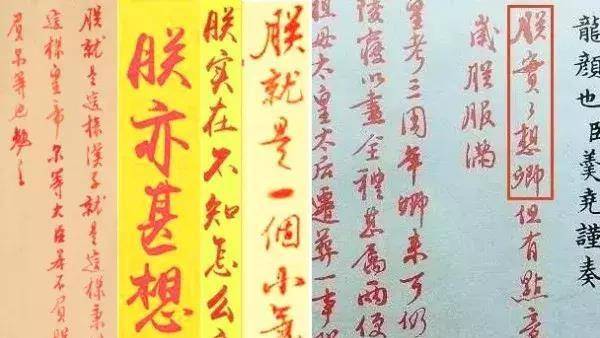 龍顏也臣羹堯謹奏
朕實々想卿但有點意
歲朕服滿
皇考三周年卿来可仍
陵寢以盡全禮甚屬兩便
祖母太皇太后遷葬一事
朕就是一個小
朕实在不知怎么
朕亦甚想
朕就是這樣漢子就是這樣秉
這樣皇帝尔等大臣若不負朕
負尔等也勉之